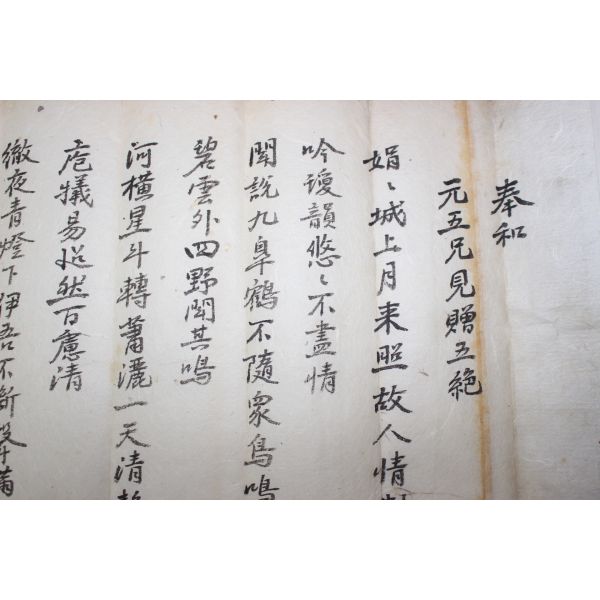 奉和
元五兄見贈五絶
娟〻城上月来照故人情
吟瓊韻悠〻不盡情
聞說九臯鶴不隨衆鳥鳴
碧雲外四野聞其鳴
河橫星斗轉蕭灑一天清
庖犧易悠然百慮清
徹夜青燈下伊吾不斷聲